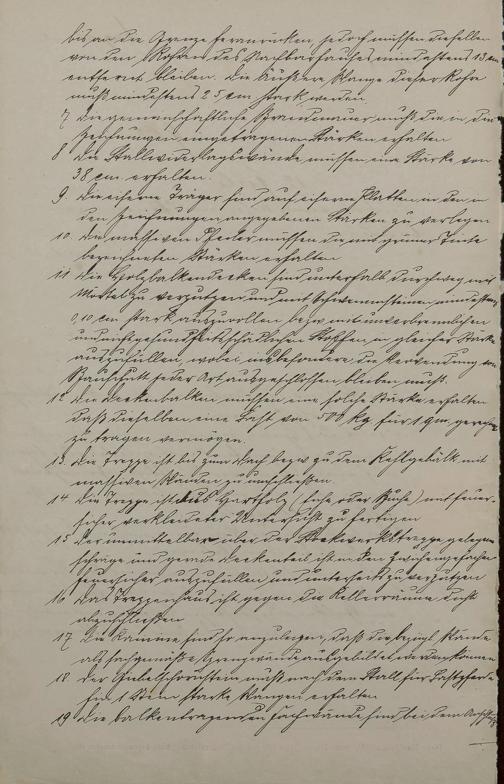 bis an die Grenze heranrücken, jedoch müssen dieselben
von den Rohren des Nachbarhauses mindestens 13 cm
entfernt bleiben. Die äußere Wange dieser Rohre
muß mindestens 25 cm stark werden.
7. Die gemeinschaftliche Brandmauer muß die in den
Zeichnungen eingetragenen Stärken erhalten
8 Die Stallwiderlagswände müssen eine Stärke von
38 cm. erhalten.
9. Die eisernen Träger sind auf eisernen Platten in den in
den Zeichnungen angegebenen Stärken zu verlegen
10. Die massiven Pfeiler müssen die mit grüner Tinte
bezeichneten Stärken erhalten
11 Die Holzbalkendecken sind unterhalb durchweg mit
Mörtel zu verputzen und mit Schwemmsteinen mindestens
0,10 cm stark auszurollen bezw mit unverbrennlichen
und nicht gesundheitsschädlichen Stoffen in gleicher Stärke
auszufüllen, wobei insbesondere die Verwendung von
Bauschutt jeder Art ausgeschlossen bleiben muß.
12 Die Deckenbalken müssen eine solche Stärke erhalten
daß dieselben eine Last von 500 kg für 1 qm
zu tragen vermögen.
13. Die Treppe ist bis zum Dach bezw zu dem Kehlgebälk mit
massiven Wänden zu umschließen.
14 Die Treppe ist aus Hartholz (Eiche oder Buche) mit feuer-
sicher verkleideter Untersicht zu fertigen
15 Der unmittelbar über der Stockwerkstreppe gelegene
schräge und gerade Deckenteil ist in den Zwischengefachen
feuersicher auszufüllen und unterseits zu verputzen
16 Das Treppenhaus ist gegen die Kellerräume dicht
abzuschließen
17 Die Kamine sind so anzulegen, daß die bezügl Wände
als sachgemäße Grenzwände ausgebildet werden können
18 Der Giebelschornstein muß nach dem Stall für
hin 1 Stein starke Wangen erhalten
19 Die balkentragenden Fachwände sind bei dem